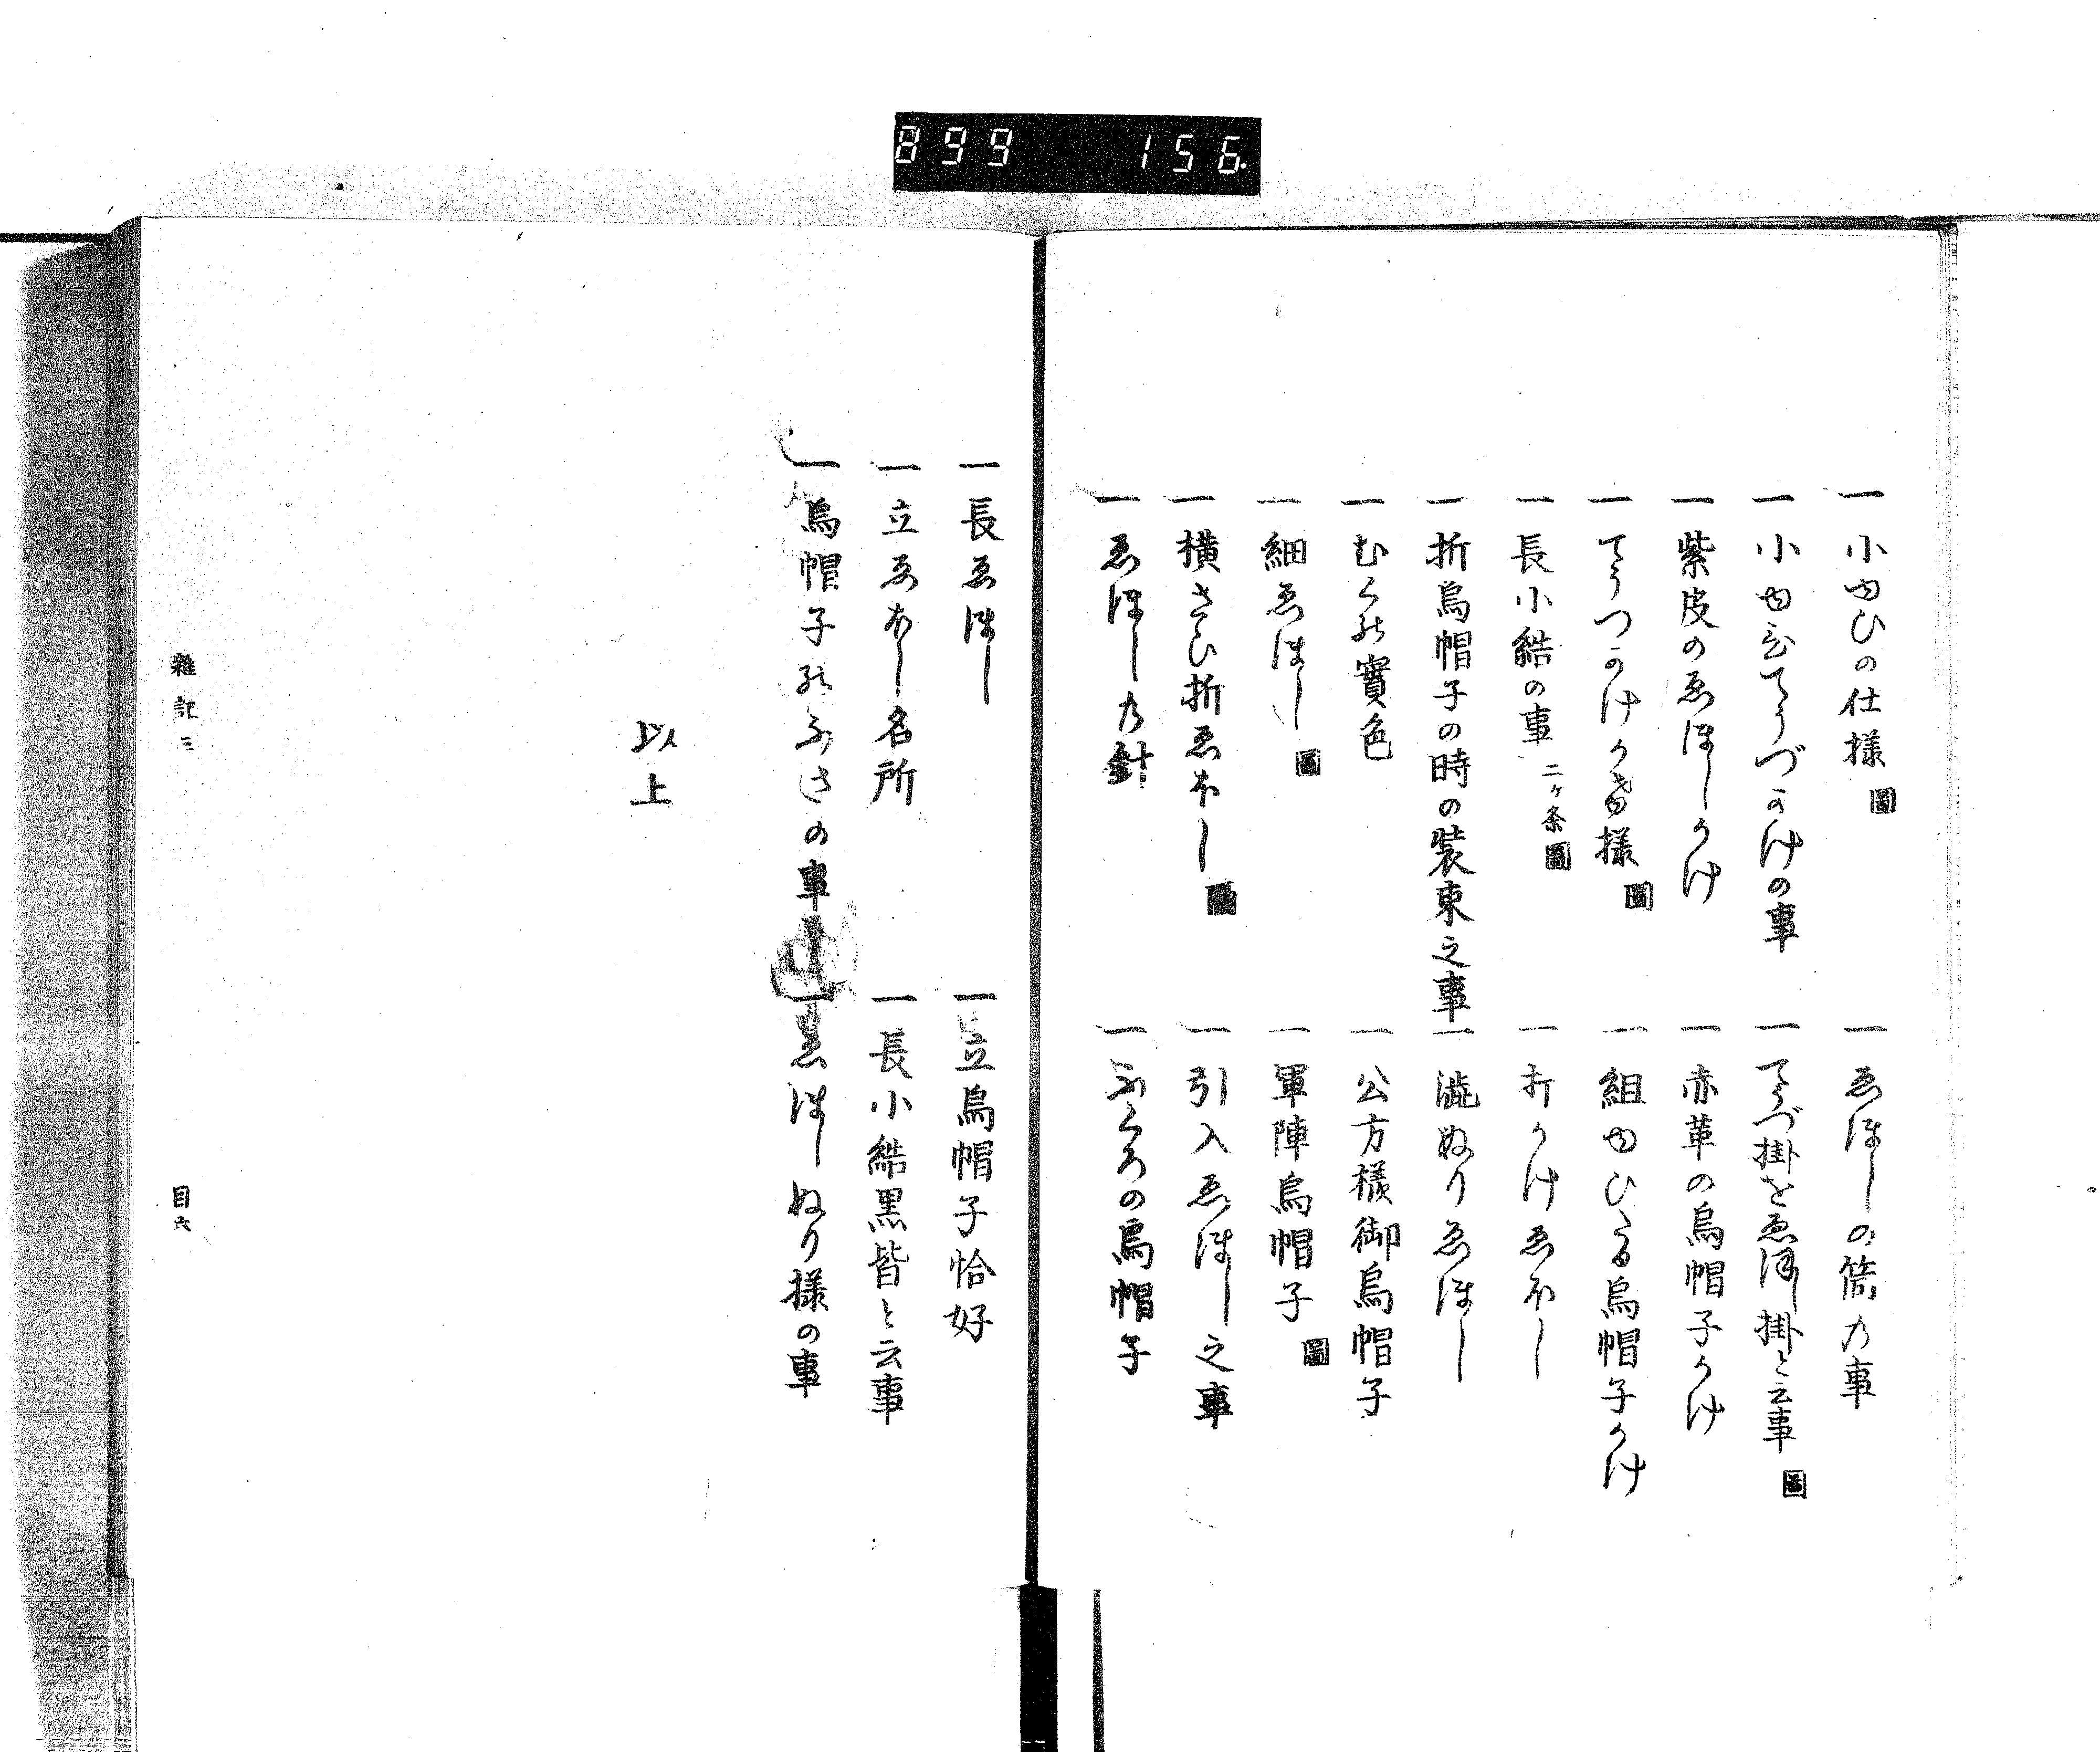 899 156
一 小ゆひの仕様 圖
一 ゑぼしの筒乃事
一 小ゆひてうづかけの事
一 てうづ掛をゑほし掛と云事 圖
一 紫皮のゑほしかけ
一 赤革の烏帽子かけ
一 てうつかけかけ様 圖
一 組ゆひたる烏帽子かけ
一 長小結の事 二ケ条 圖
一 折かけゑほし
一 折烏帽子の時の装束之事
一 澁ぬりゑほし
一 むくの實色
一 公方様御烏帽子
一 細ゑほし 圖
一 軍陣烏帽子 圖
一 横さひ折ゑほし 圖
一 引入ゑほし之事
一 ゑほし乃針
一 ふくろの烏帽子
一 長ゑほし
一 立烏帽子恰好
一 立ゑほし名所
一 長小結黒皆と云事
一 烏帽子のふさの事
一 ゑほしぬり様の事
以上
雜記三 目六